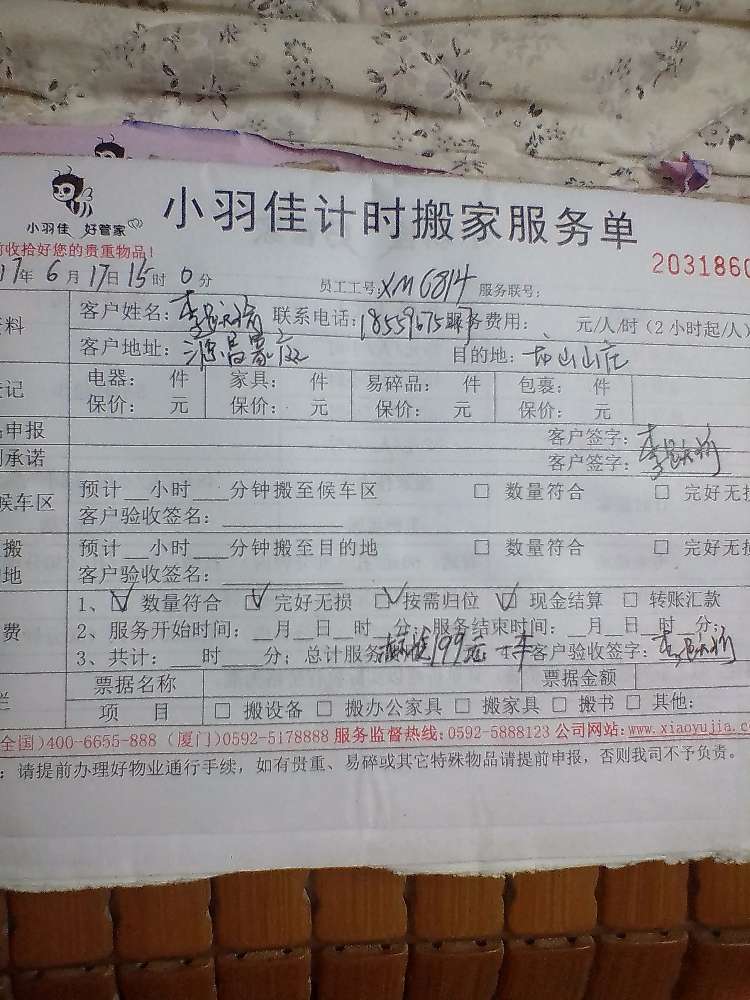 小羽佳 好管家
小羽佳计时搬家服务单
收拾好您的贵重物品！
2031860
17年6月17日15时0分 员工工号：XM6814 服务联号：
客户姓名： 联系电话：18559675 服务费用： 元/人/时（2小时起/人）
客户地址：源昌豪庭 目的地：山山庄
电器： 件 家具： 件 易碎品： 件 包裹： 件
登记
保价： 元 保价： 元 保价： 元 保价： 元
申报 客户签字：
承诺 客户签字：
预计__小时___分钟搬至候车区 □ 数量符合 □ 完好无损
候车区
客户验收签名：
搬 预计__小时___分钟搬至目的地 □ 数量符合 □ 完好无损
地 客户验收签名：
1、☑ 数量符合 ☑ 完好无损 ☑ 按需归位 ☑ 现金结算 □ 转账汇款
费 2、服务开始时间：__月__日__时__分；服务结束时间：__月__日__时__分；
3、共计：___时___分；总计服务 199元 客户验收签字：
票据名称 票据金额
栏 项 目 □ 搬设备 □ 搬办公家具 □ 搬家具 □ 搬书 □ 其他：
全国）400-6655-888 （厦门）0592-5178888 服务监督热线：0592-5888123 公司网站：www.xiaoyujia.c
：请提前办理好物业通行手续，如有贵重、易碎或其它特殊物品请提前申报，否则我司不予负责。